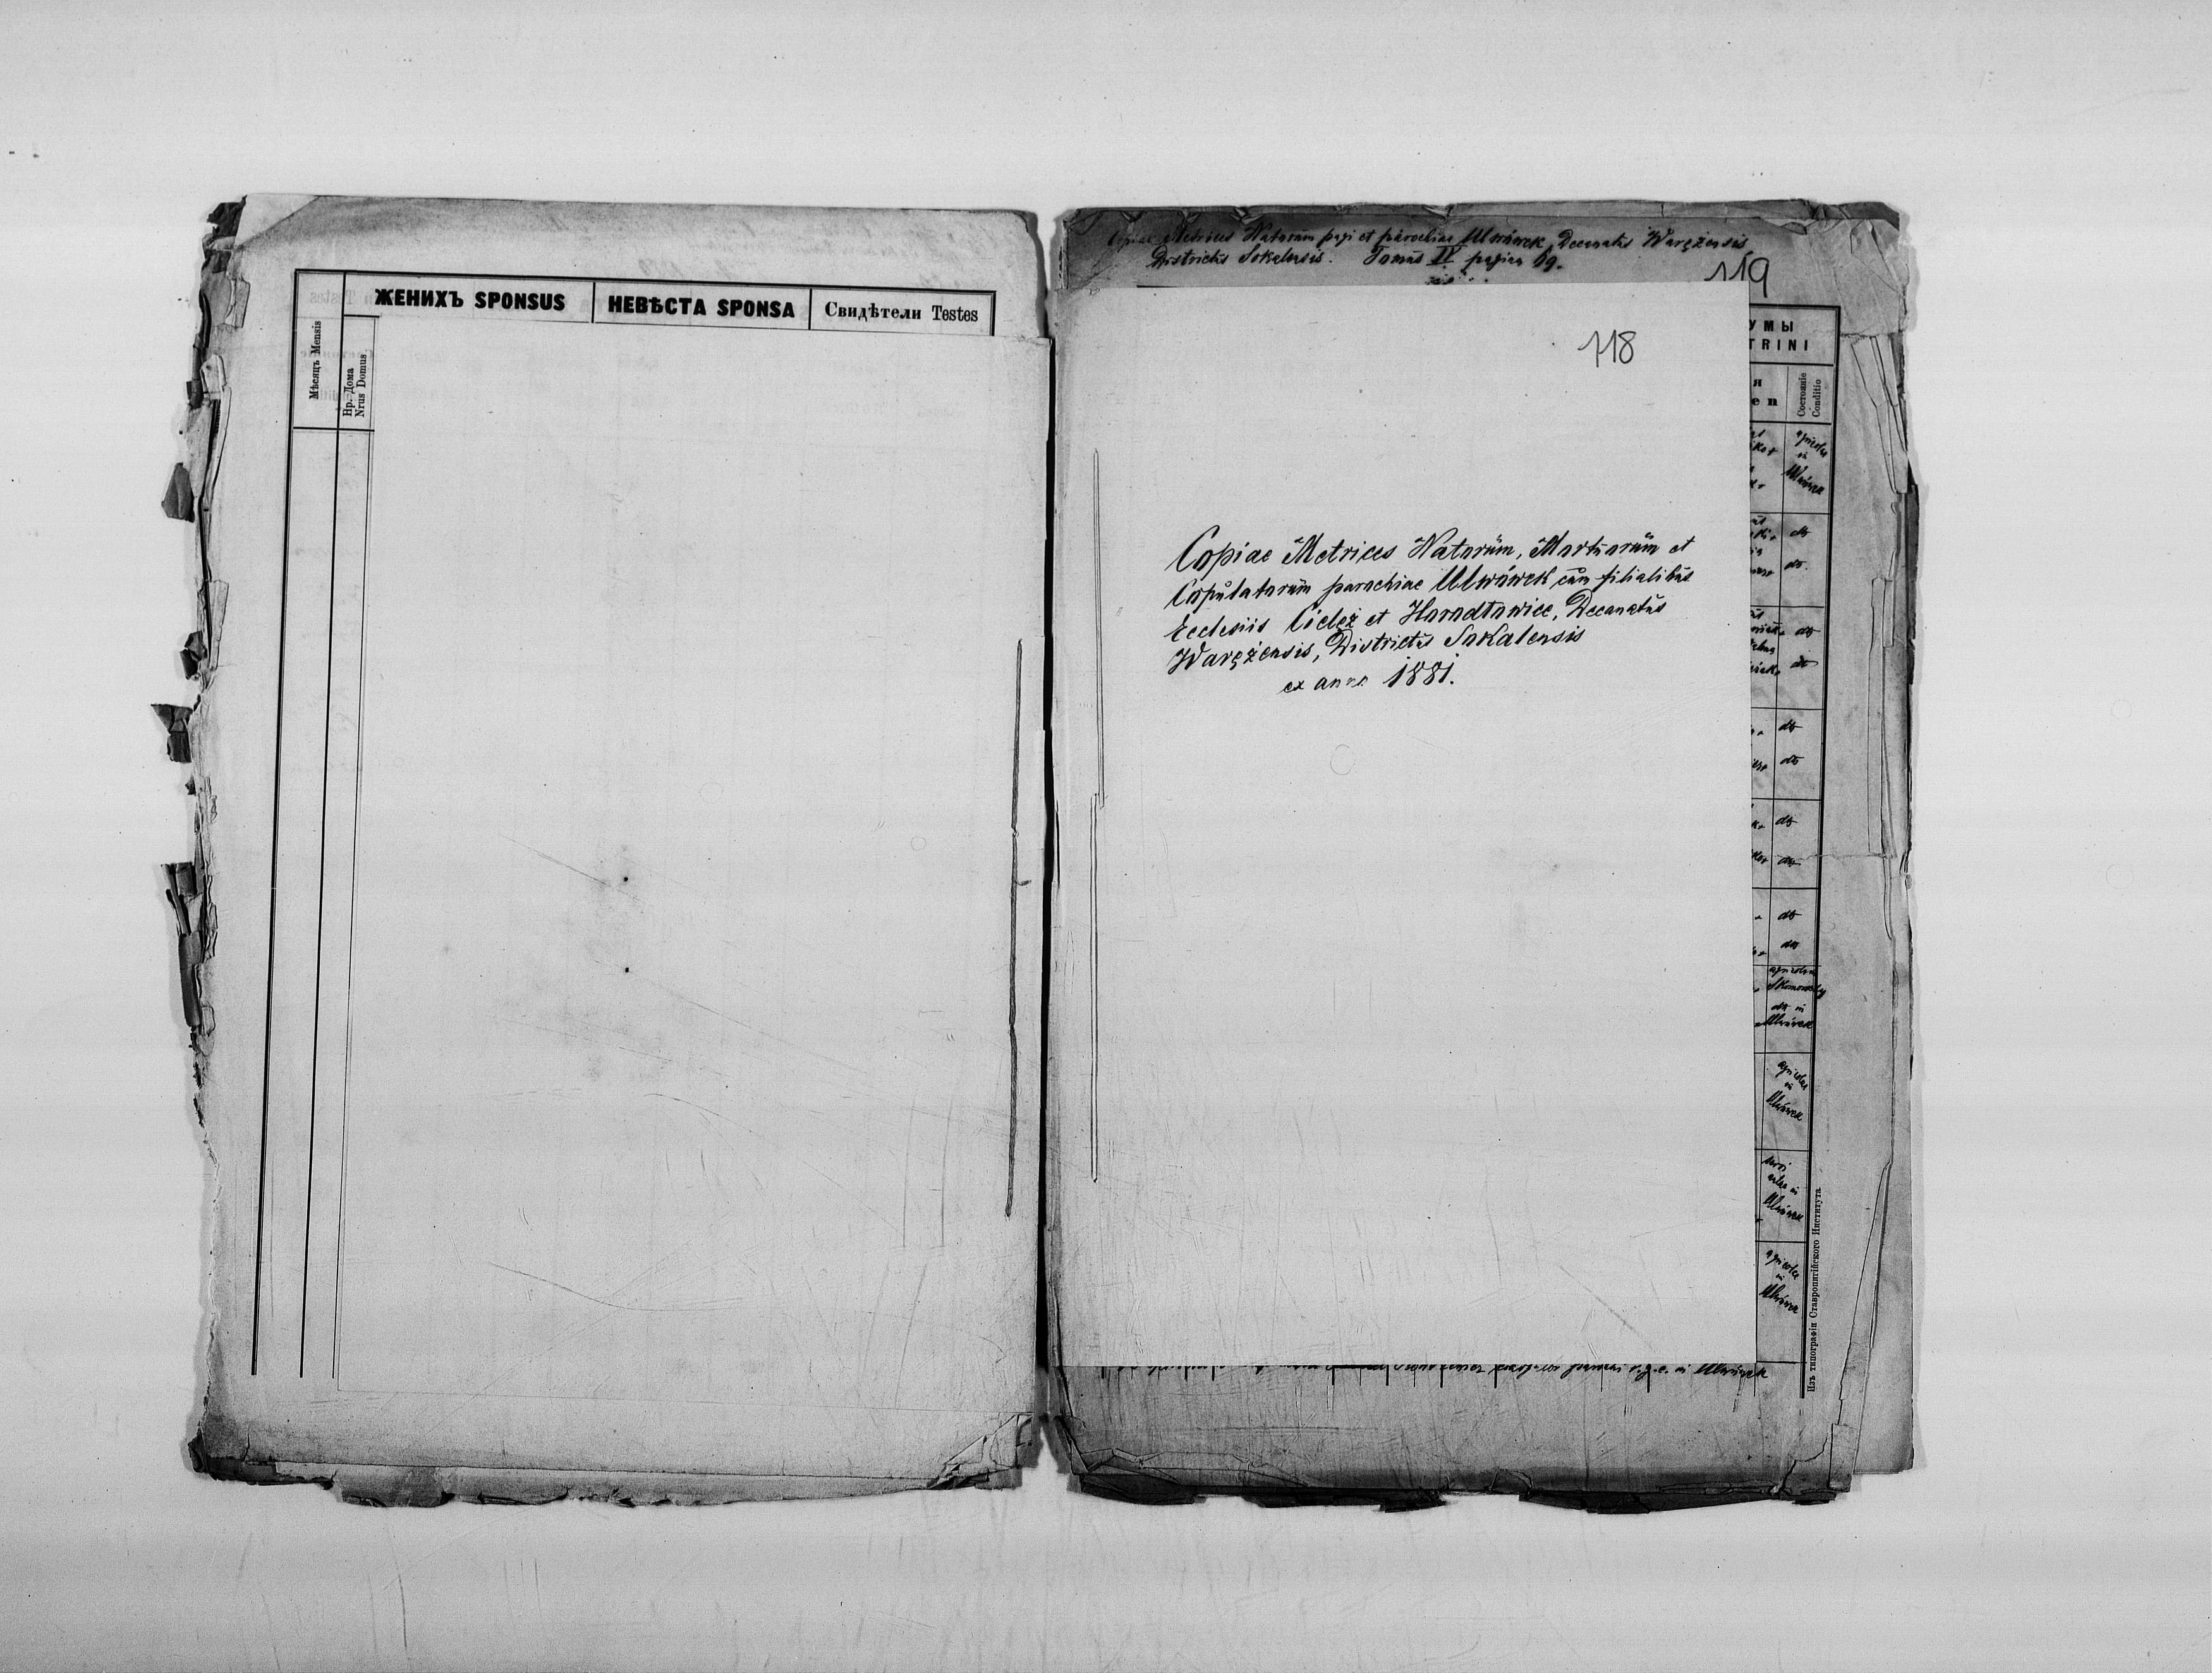 ЖЕНИХЪ SPONSUS
НЕВѢСТА SPONSA
Свидѣтели Testes
Мѣсяцъ Mensis
Нр. Дома
Nrus Domus
Copiae Metrices Natorum pagi et parochiae Ulwówek, Decanatus Warężensis
Districtus Sokalensis. Tomus IV pagina 69.
119
118
Copiae Metrices Natorum, Mortuorum et
Copulatorum parochiae Ulwówek cum filialibus
Ecclesiis Cielęż et Horodłowice, Decanatus
Warężensis, Districtus Sokalensis
ex anno 1881.
УМЫ
TRINI
я
en
Состояніе
Conditio
agricolae
in
Ulwówek
dto
dto
dto
dto
dto
dto
dto
dto
dto
dto
agricola in
dto in
Ulwówek
agricolae
in
Ulwówek
in
Ulwówek
agricolae
in
Ulwówek
in Ulwówek
Изъ типографіи Ставропигійского Института